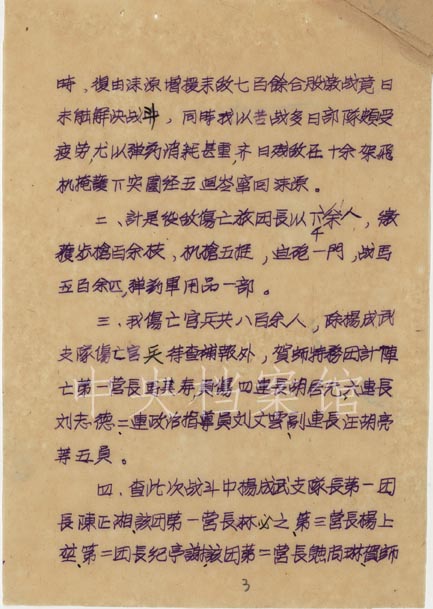 時，復由涞源增援来敌七百餘合股激战竟日
未能解决战斗，同時我以苦战多日部隊頗受
疲劳，尤以弹药消耗甚重，齐日残敌在十余架飛
机掩護下突圍经五迴岑窜回涞源。
二、計是役敌傷亡旅团長以下余人，繳
4
獲步槍百余枝，机槍五挺，自砲一門，战馬
五百余匹，弹药軍用品一部。
三、我傷亡官兵共八百余人，除楊成武
支隊傷亡官兵待查補報外，賀師特務团計陣
亡第三营長，負傷四連長胡启光，六連長
刘志德，二連政治指導員刘文，副連長汪胡亭
等五員。
四、查此次战斗中楊成武支隊長第一团
長陳正湘，該团第一营長林必之，第三营長楊上
堃，第二团長紀亭谢，該团第二营長尚琳，賀師
3
中央档案馆